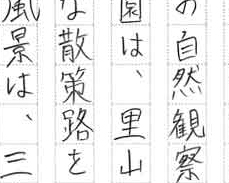 の自然観察
園は、里山
な散策路を
風景は、三